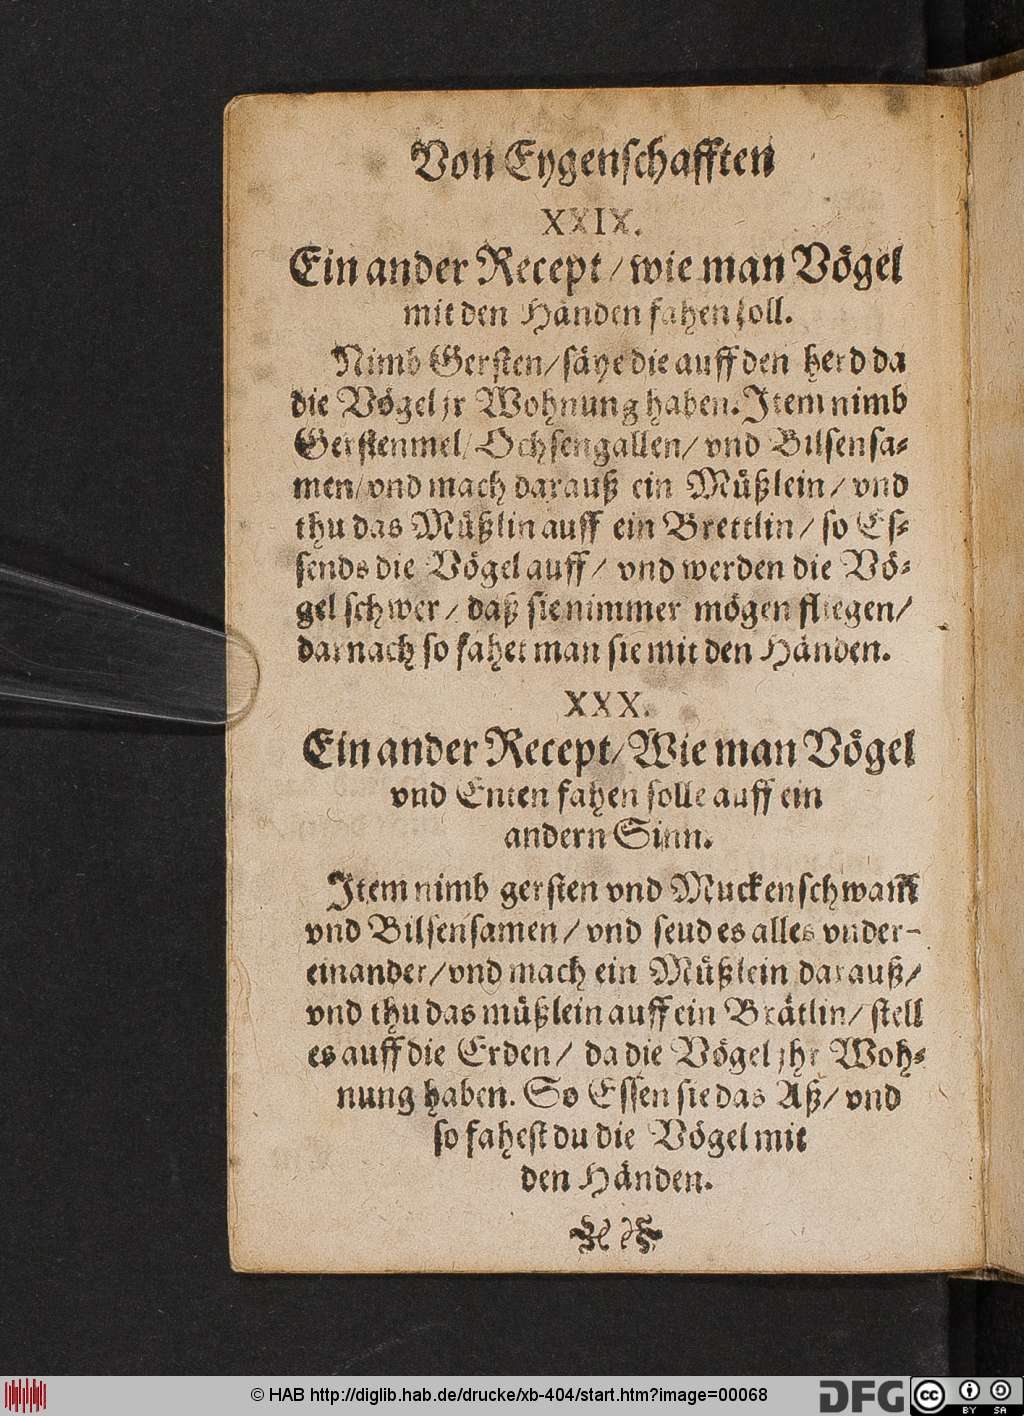 Von Eygenschafften
XXIX.
Ein ander Recept / wie man Vögel
mit den Händen fahen soll.
Nimb Gersten / säye die auff den herd da
die Vögel jr Wohnung haben. Item nimb
Gerstenmel / Ochsengallen / vnd Bilsensa-
men / vnd mach darauß ein Müßlein / vnd
thu das Müßlin auff ein Brettlin / so Es-
sends die Vögel auff / vnd werden die Vö-
gel schwer / daß sie nimmer mögen fliegen /
darnach so fahet man sie mit den Händen.
XXX.
Ein ander Recept / Wie man Vögel
vnd Enten fahen solle auff ein
andern Sinn.
Item nimb gersten vnd Muckenschwam̃
vnd Bilsensamen / vnd seud es alles vnder-
einander / vnd mach ein Müßlein darauß /
vnd thu das müßlein auff ein Brätlin / stell
es auff die Erden / da die Vögel jhr Woh-
nung haben. So Essen sie das Aß / vnd
so fahest du die Vögel mit
den Händen.
© HAB http://diglib.hab.de/drucke/xb-404/start.htm?image=00068
DFG
cc BY SA